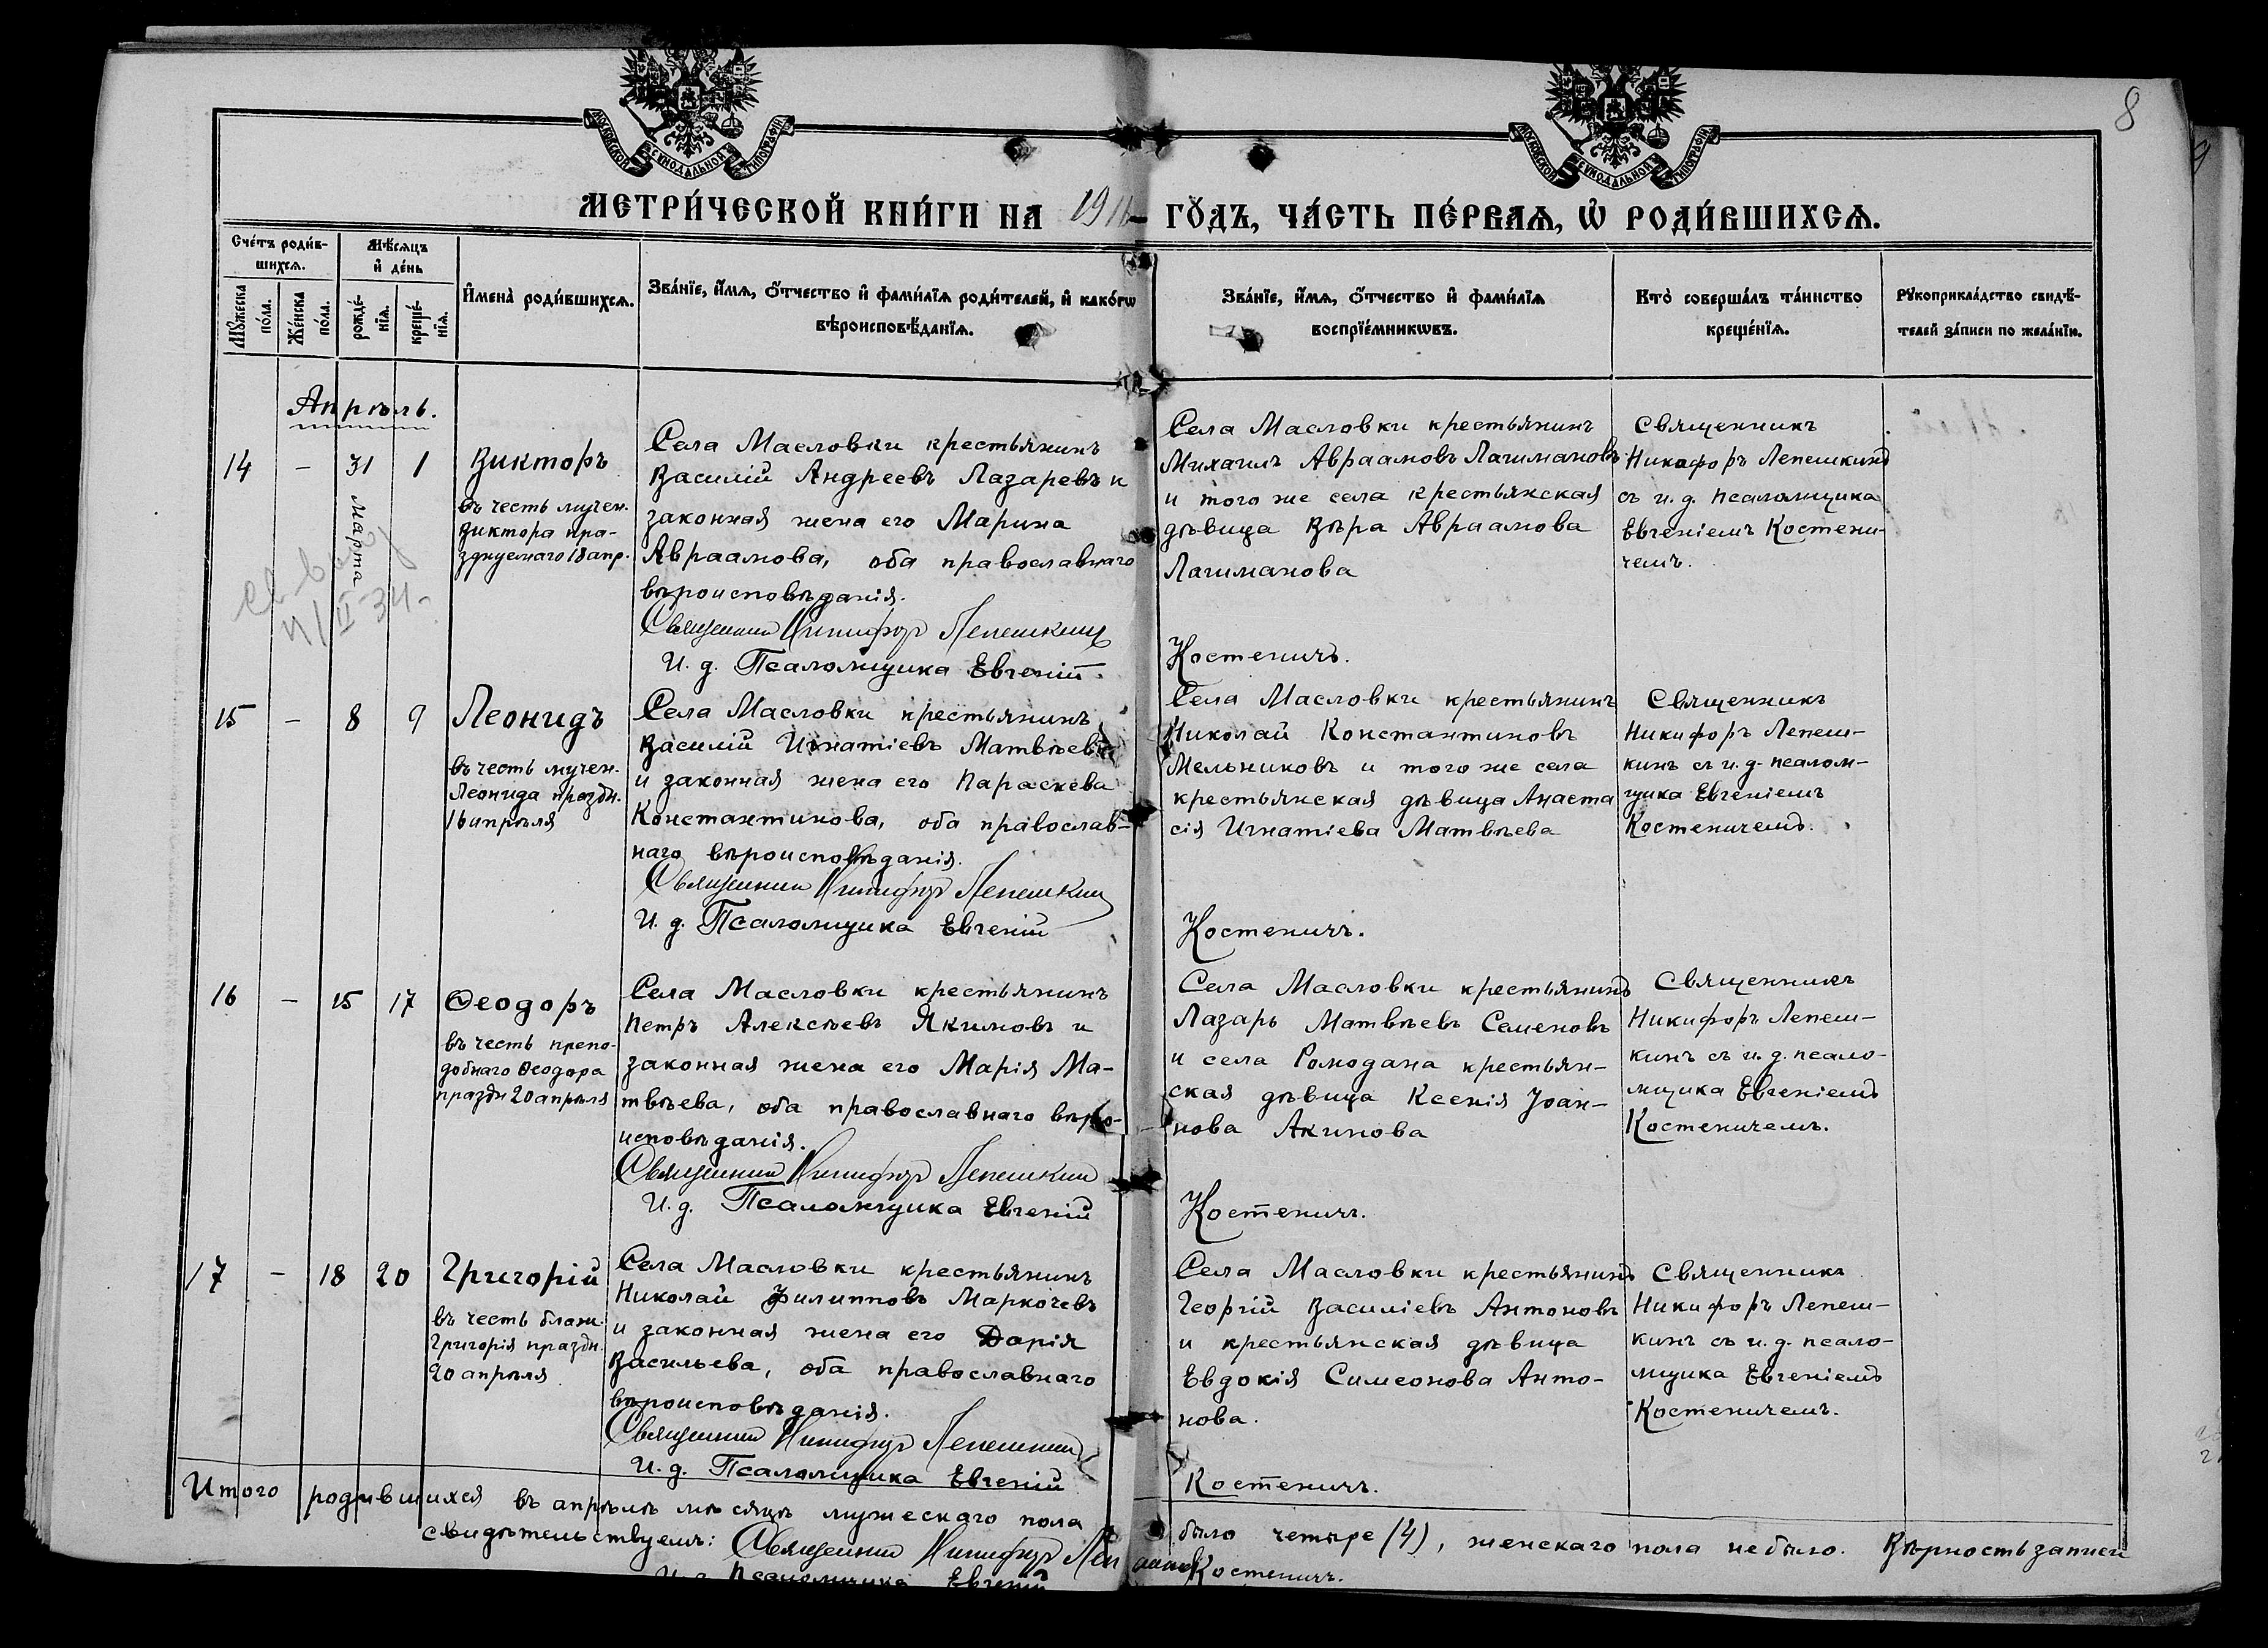 8
МОСКОВСКОЙ СѴНОДАЛЬНОЙ ТИПОГРАФІИ
МОСКОВСКОЙ СѴНОДАЛЬНОЙ ТИПОГРАФІИ
МЕТРИ́ЧЕСКОЙ КНИ́ГИ НА 1911 ГО́ДЪ, ЧА́СТЬ ПЕ́РВАѦ, Ѡ РОДИ́ВШИХСѦ.
Сче́тъ роди́в-
шихсѧ.
Мꙋ́жеска
по́ла.
Же́нска
по́ла.
Мѣ́сѧцъ
и҆ де́нь
рожде́-
нїѧ.
креще́-
нїѧ.
И҆мена̀ роди́вшихсѧ.
Зва́нїе, и҆́мѧ, ѻ҆́тчество и҆ фами́лїѧ роди́телей, и҆ како́гѡ
вѣроисповѣ́данїѧ.
Зва́нїе, и҆́мѧ, ѻ҆́тчество и҆ фами́лїѧ
воспрїе́мникѡвъ.
Кто̀ соверша́лъ та́инство
креще́нїѧ.
Рꙋкоприкла́дство свидѣ́-
телей за́писи по жела́нїю.
Апрѣль.
14
-
31
Марта
1
Викторъ
въ честь мучен.
Виктора пра-
зднуемаго 18 апр.
Села Масловки крестьянинъ
Василій Андреевъ Лазаревъ и
законная жена его Марина
Авраамова, оба православнаго
вѣроисповѣданія.
Священникъ Никифоръ Лепешкинъ
И. д. Псаломщика Евгеній
Села Масловки крестьянинъ
Михаилъ Авраамовъ Лагимановъ
и того же села крестьянская
дѣвица Вѣра Авраамова
Лагиманова
Костеничъ.
Священникъ
Никифоръ Лепешкинъ
съ и. д. псаломщика
Евгеніемъ Костени-
чемъ.
II-34
15
-
8
9
Леонидъ
въ честь мучен.
Леонида праздн.
16 апрѣля
Села Масловки крестьянинъ
Василій Игнатіевъ Матвѣевъ
и законная жена его Параскева
Константинова, оба православ-
наго вѣроисповѣданія.
Священникъ Никифоръ Лепешкинъ
И. д. Псаломщика Евгеній
Села Масловки крестьянинъ
Николай Константиновъ
Мельниковъ и того же села
крестьянская дѣвица Анаста
сія Игнатіева Матвѣева
Костеничъ.
Священникъ
Никифоръ Лепеш-
кинъ съ и. д. псалом-
щика Евгеніемъ
Костеничемъ.
16
-
15
17
Ѳеодоръ
въ честь препо-
добнаго Ѳеодора
праздн 20 апрѣля
Села Масловки крестьянинъ
Петръ Алексѣевъ Якимовъ и
законная жена его Марія Ма-
твѣева, оба православнаго вѣро-
исповѣданія.
Священникъ Никифоръ Лепешкинъ
И. д. Псаломщика Евгеній
Села Масловки крестьянинъ
Лазарь Матвѣевъ Семеновъ
и села Ромодана крестьян-
ская дѣвица Ксенія Іоан-
нова Акинова
Костеничъ.
Священникъ
Никифоръ Лепеш-
кинъ съ и. д. псало-
мщика Евгеніемъ
Костеничемъ.
17
-
18
20
Григорій
въ честь блаж.
Григорія праздн.
20 апрѣля
Села Масловки крестьянинъ
Николай Филипповъ Маркочевъ
и законная жена его Дарія
Васильева, оба православнаго
вѣроисповѣданія.
Священникъ Никифоръ Лепешкинъ
И. д. Псаломщика Евгеній
Села Масловки крестьянинъ
Георгій Василіевъ Антоновъ
и крестьянская дѣвица
Евдокія Симеонова Анто-
нова.
Костеничъ.
Священникъ
Никифоръ Лепеш-
кинъ съ и. д. псало-
мщика Евгеніемъ
Костеничемъ.
Итого родившихся въ апрѣлѣ мѣсяцѣ мужескаго пола было четыре (4), женскаго пола не было. Вѣрность записи
свидѣтельствуемъ: Священникъ Никифоръ Лепешкинъ
И. д. Псаломщика Евгеній Костеничъ.